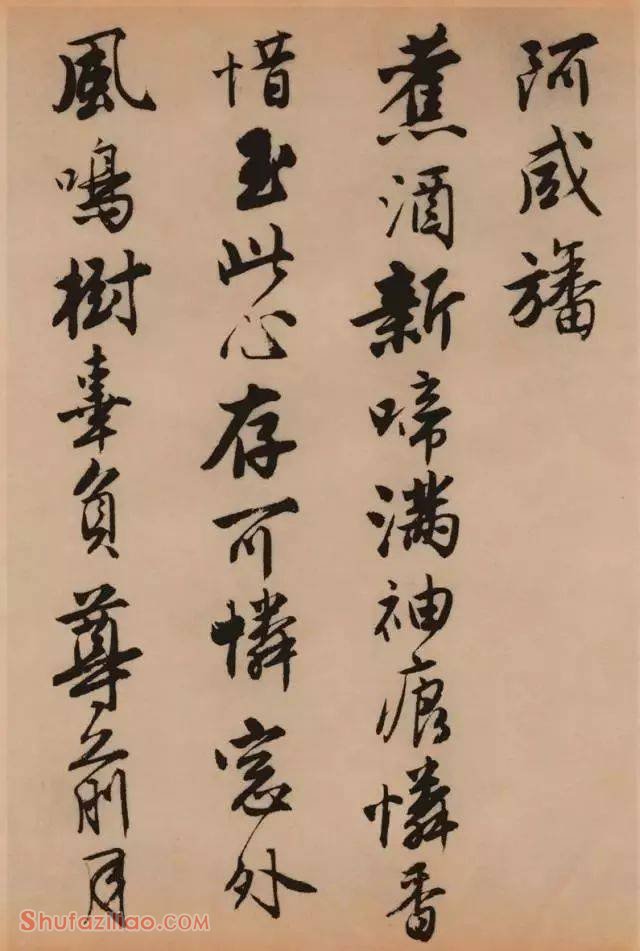 阿咸旛
舊酒新啼滿袖痕憐香
惜玉此心存可憐窓外
風鳴樹辜負尊前月
Shufaziliao.com